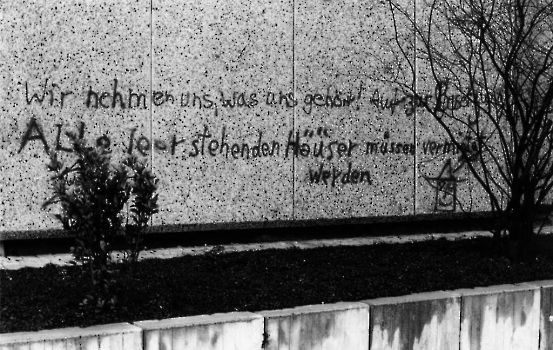 Wir nehmen uns, was uns gehört! auf zur
Alle leer stehenden Häuser müssen vermietet
werden